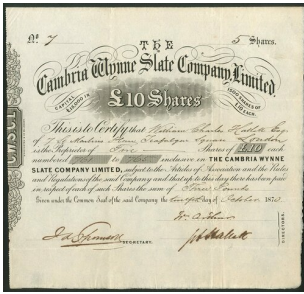 No. 7 5 Shares.
THE
Cambria Wynne Slate Company, Limited.
CAPITAL £10,000 IN 1000 SHARES OF £10 EACH.
£10 Shares
This is to Certify that William Charles Hallett Esq.
of Trafalgar Square London
is the Proprietor of Five Shares of £10 each
numbered to inclusive in THE CAMBRIA WYNNE
SLATE COMPANY LIMITED, subject to the Articles of Association and the Rules
and Regulations of the said Company and that up to this day there has been paid
in respect of each of such Shares the sum of Pounds
Given under the Common Seal of the said Company the day of October 187
DIRECTORS.
SECRETARY.